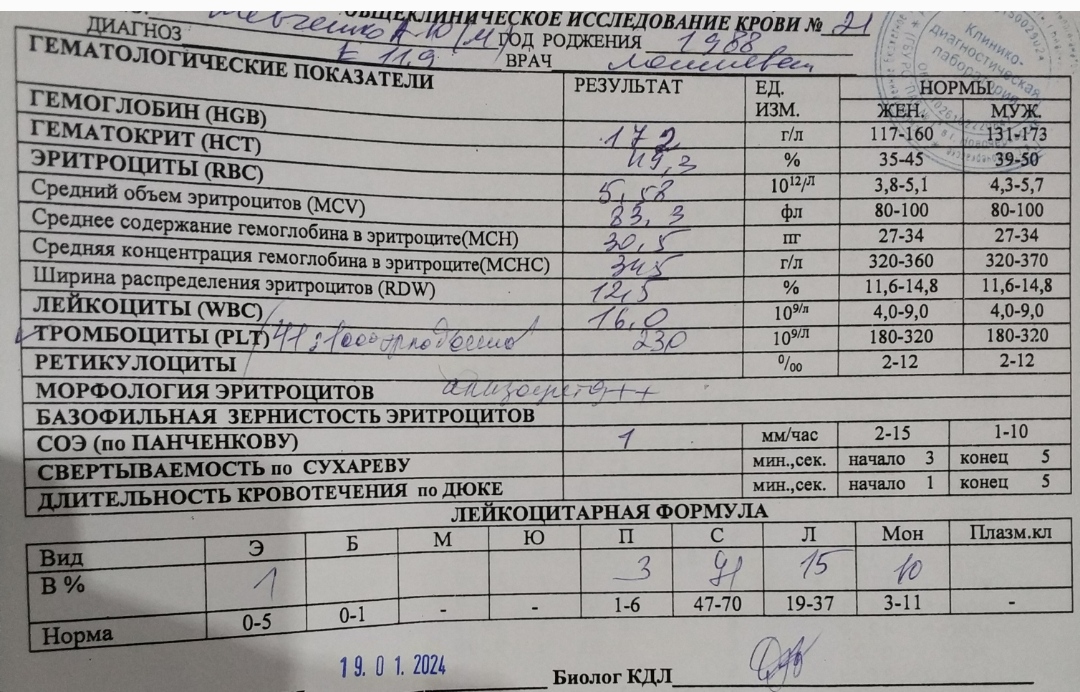 ОБЩЕКЛИНИЧЕСКОЕ ИССЛЕДОВАНИЕ КРОВИ № 21
ДИАГНОЗ ГОД РОДЖЕНИЯ 1988
К 11.9 ВРАЧ
ГЕМАТОЛОГИЧЕСКИЕ ПОКАЗАТЕЛИ РЕЗУЛЬТАТ ЕД. ИЗМ. НОРМЫ
ЖЕН. МУЖ.
ГЕМОГЛОБИН (HGB) 172 г/л 117-160 131-173
ГЕМАТОКРИТ (HCT) 49,3 % 35-45 39-50
ЭРИТРОЦИТЫ (RBC) 5,58 10¹²/Л 3,8-5,1 4,3-5,7
Средний объем эритроцитов (MCV) 83,3 фл 80-100 80-100
Среднее содержание гемоглобина в эритроците(MCH) 30,5 пг 27-34 27-34
Средняя концентрация гемоглобина в эритроците(MCHC) 345 г/л 320-360 320-370
Ширина распределения эритроцитов (RDW) 12,5 % 11,6-14,8 11,6-14,8
ЛЕЙКОЦИТЫ (WBC) 16,0 10⁹/л 4,0-9,0 4,0-9,0
ТРОМБОЦИТЫ (PLT) 230 10⁹/Л 180-320 180-320
РЕТИКУЛОЦИТЫ ⁰/₀₀ 2-12 2-12
МОРФОЛОГИЯ ЭРИТРОЦИТОВ
БАЗОФИЛЬНАЯ ЗЕРНИСТОСТЬ ЭРИТРОЦИТОВ
СОЭ (по ПАНЧЕНКОВУ) 1 мм/час 2-15 1-10
СВЕРТЫВАЕМОСТЬ по СУХАРЕВУ мин.,сек. начало 3 конец 5
ДЛИТЕЛЬНОСТЬ КРОВОТЕЧЕНИЯ по ДЮКЕ мин.,сек. начало 1 конец 5
ЛЕЙКОЦИТАРНАЯ ФОРМУЛА
Вид Э Б М Ю П С Л Мон Плазм.кл
В % 1 3 71 15 10
Норма 0-5 0-1 - - 1-6 47-70 19-37 3-11 -
19.01.2024 Биолог КДЛ
Клинико-
диагностическая
лаборатория